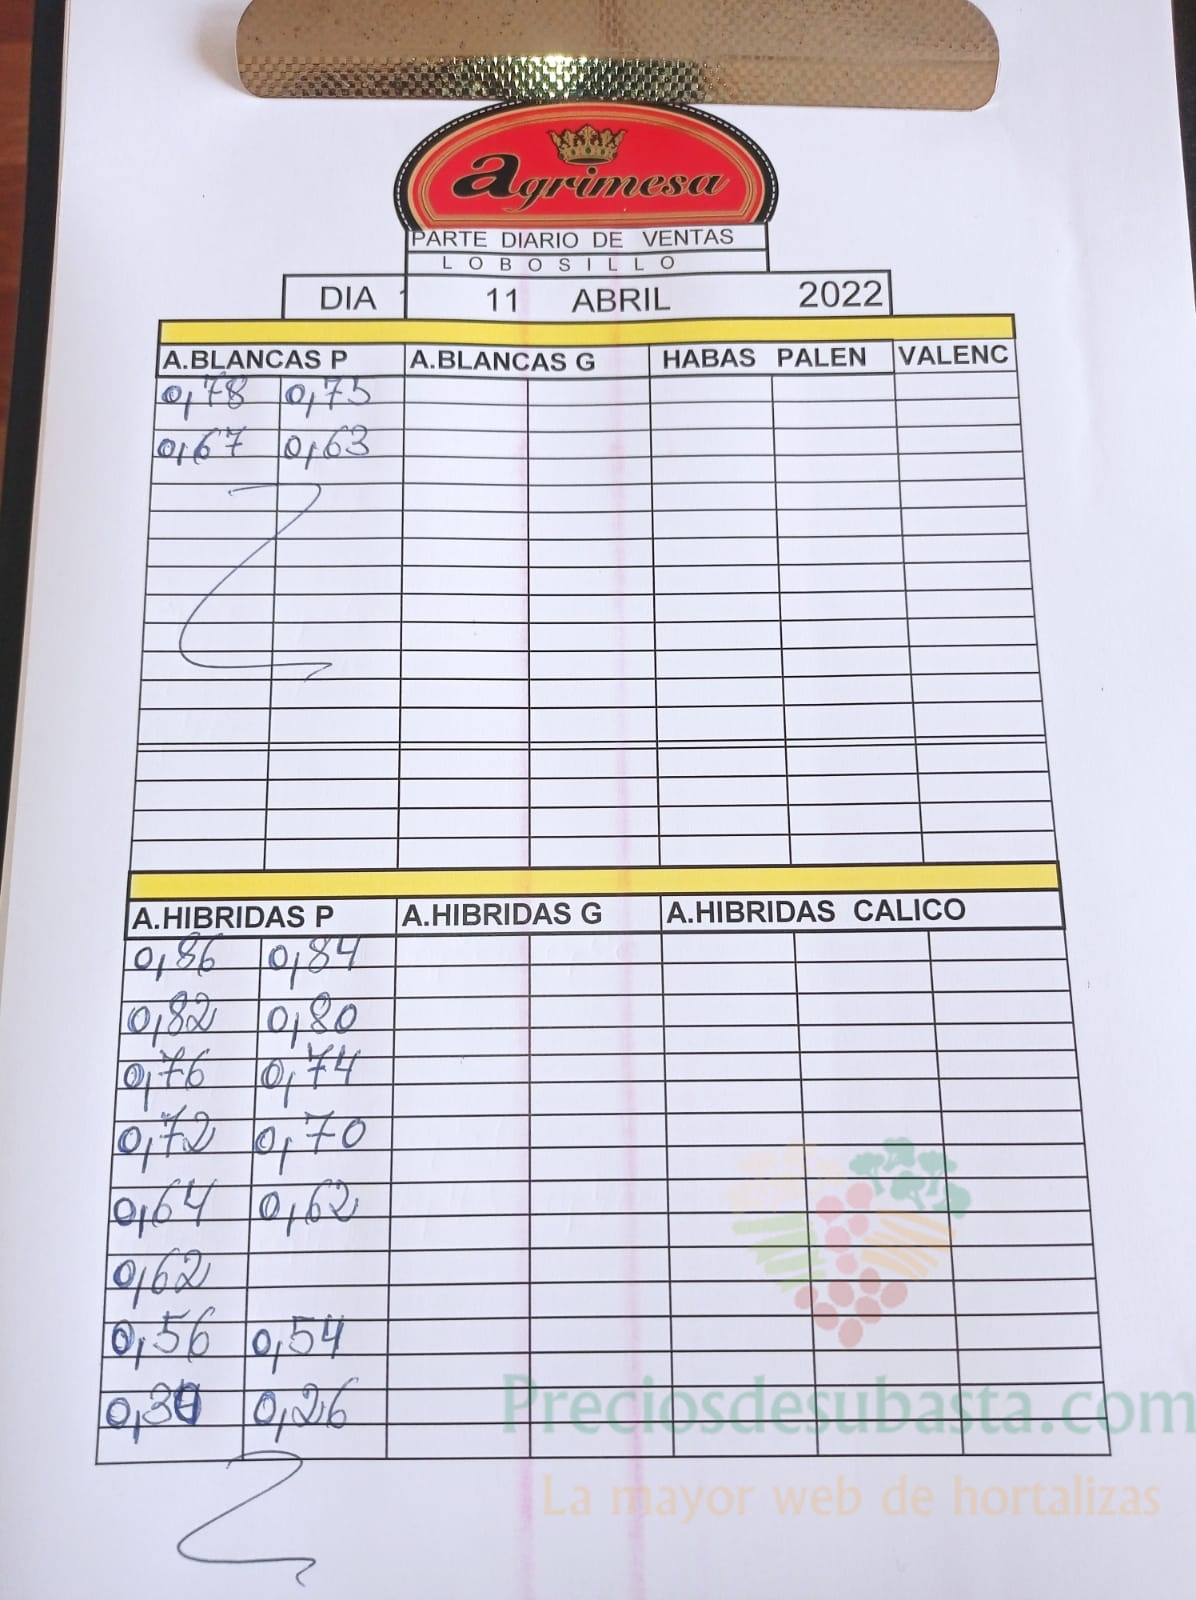 agrimesa
PARTE DIARIO DE VENTAS
LOBOSILLO
DIA 11 ABRIL 2022
A.BLANCAS P A.BLANCAS G HABAS PALEN VALENC
0,78 0,75
0,67 0,63
A.HIBRIDAS P A.HIBRIDAS G A.HIBRIDAS CALICO
0,86 0,84
0,82 0,80
0,76 0,74
0,72 0,70
0,64 0,62
0,62
0,56 0,54
0,26
Preciosdesubasta.com
La mayor web de hortalizas